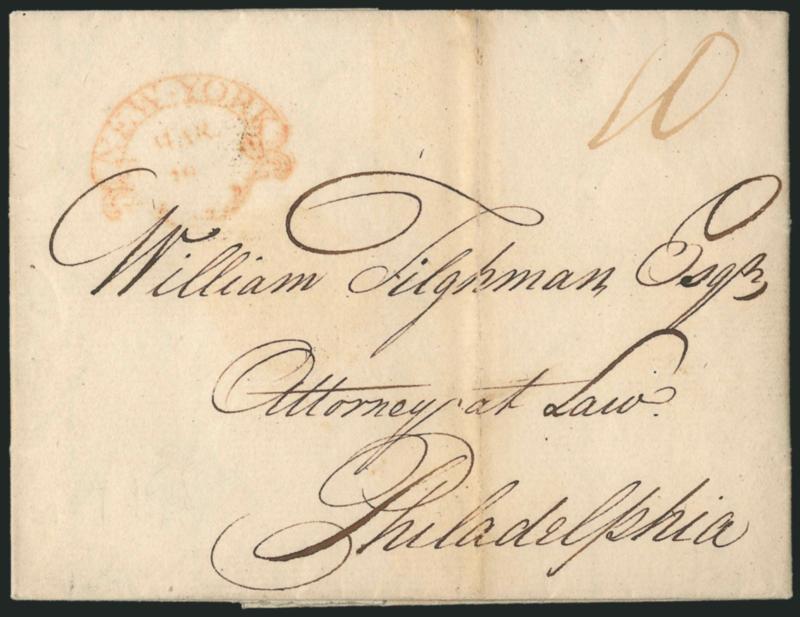 NEW-YORK
MAR
10
William Tilghman, Esqr,
Attorney at Law.
Philadelphia